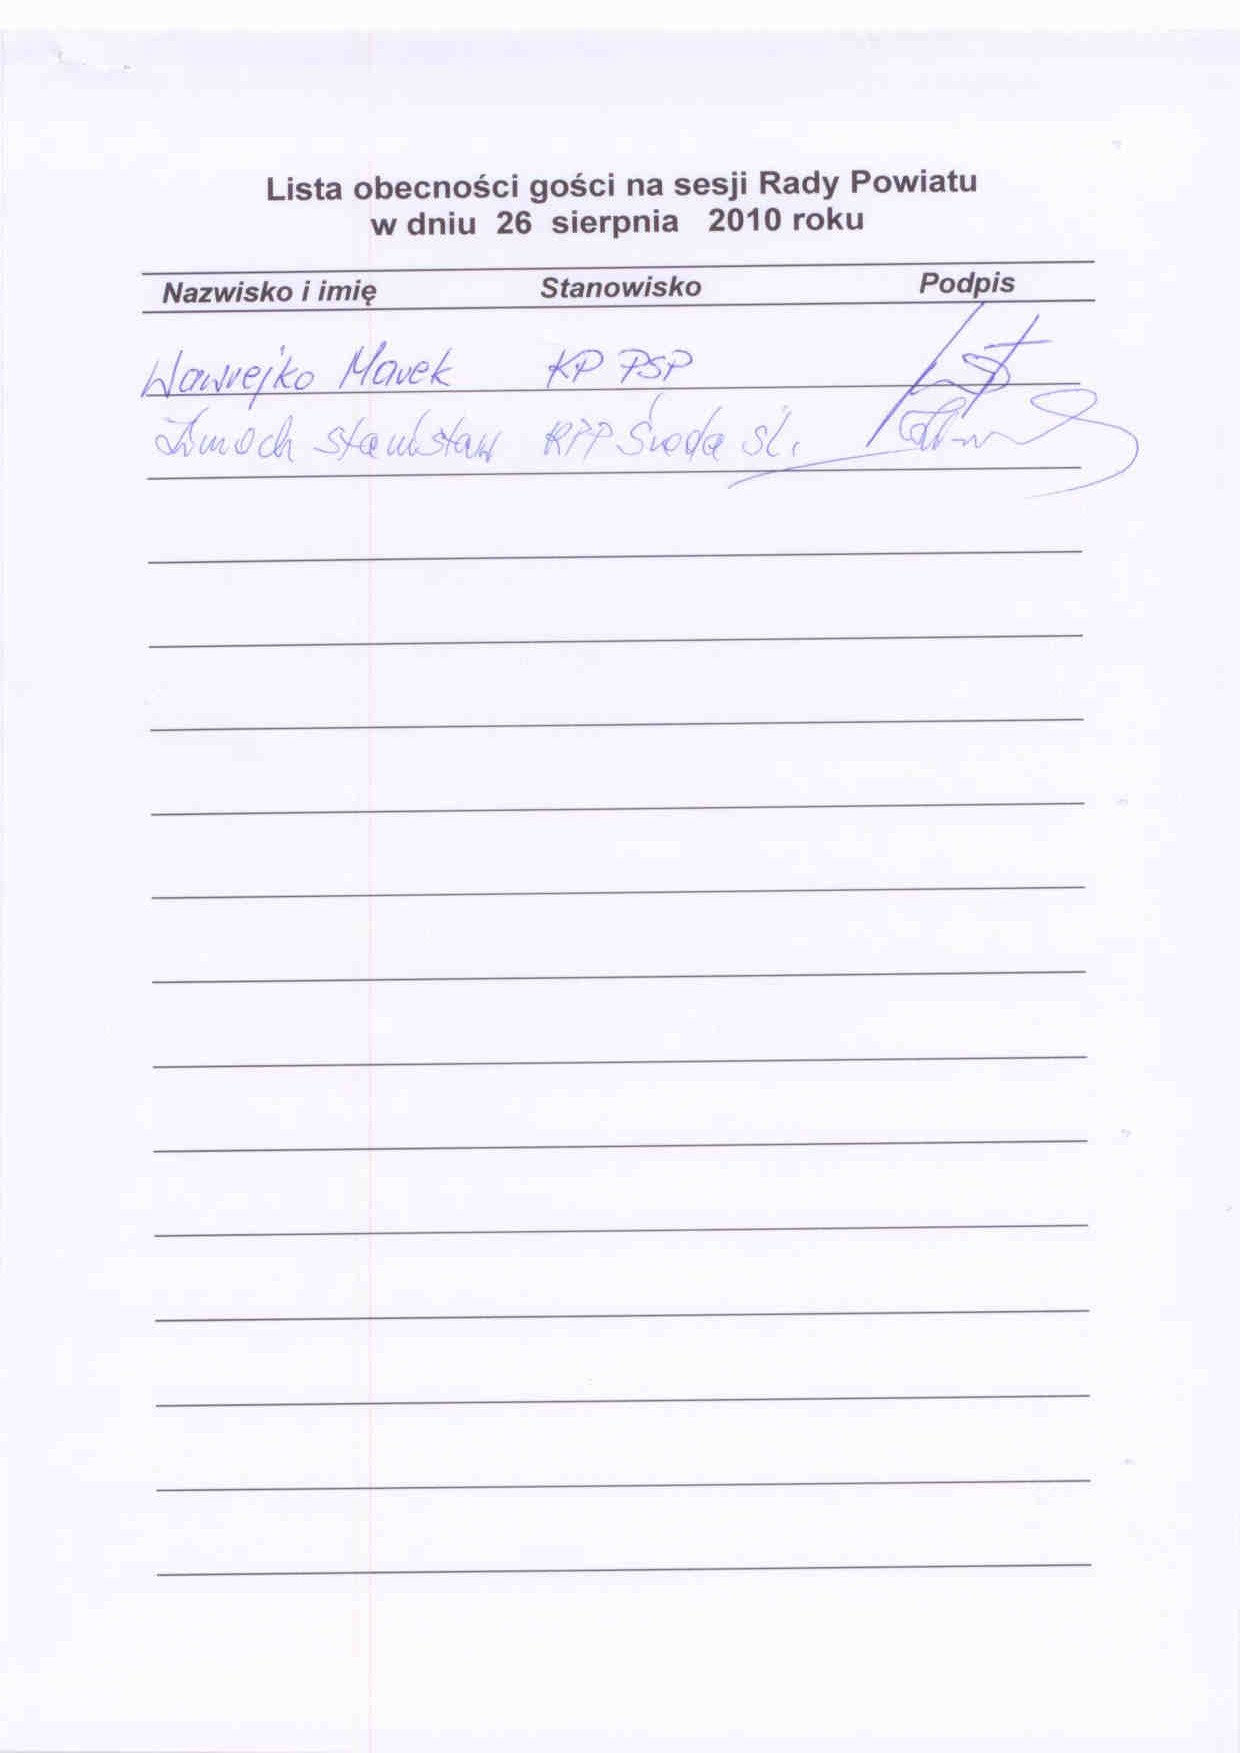 Lista obecności gości na sesji Rady Powiatu
w dniu 26 sierpnia 2010 roku
Nazwisko i imię Stanowisko Podpis
Wawrejko Marek KP PSP
Żmoch Stanisław KPP Środa Śl.